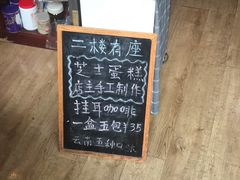 二楼有座
芝士蛋糕
店主手工制作
挂耳咖啡
一盒五包¥35
云南五种口味